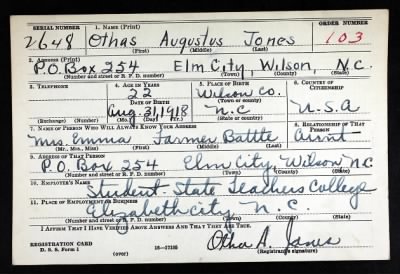 SERIAL NUMBER 1. NAME (Print) ORDER NUMBER
2648 Othas Augustus Jones 103
(First) (Middle) (Last)
2. ADDRESS (Print)
P.O. Box 254 Elm City, Wilson, N.C.
(Number and street or R. F. D. number) (Town) (County) (State)
3. TELEPHONE 4. AGE IN YEARS 5. PLACE OF BIRTH 6. COUNTRY OF CITIZENSHIP
22 Wilson Co.
DATE OF BIRTH (Town or county)
Aug. 31, 1918 N.C. U.S.A
(Exchange) (Number) (Mo.) (Day) (Yr.) (State or country)
7. NAME OF PERSON WHO WILL ALWAYS KNOW YOUR ADDRESS 8. RELATIONSHIP OF THAT PERSON
Mrs. Emma Farmer Battle Aunt
(Mr., Mrs., Miss) (First) (Middle) (Last)
9. ADDRESS OF THAT PERSON
P.O. Box 254 Elm City, Wilson N.C
(Number and street or R. F. D. number) (Town) (County) (State)
10. EMPLOYER'S NAME
Student-State Teachers College
11. PLACE OF EMPLOYMENT OR BUSINESS
Elizabeth City, N.C.
(Number and street or R. F. D. number) (Town) (County) (State)
I AFFIRM THAT I HAVE VERIFIED ABOVE ANSWERS AND THAT THEY ARE TRUE.
Othas A. Jones
REGISTRATION CARD
D. S. S. Form 1 (over) 16—17105 (Registrant's signature)